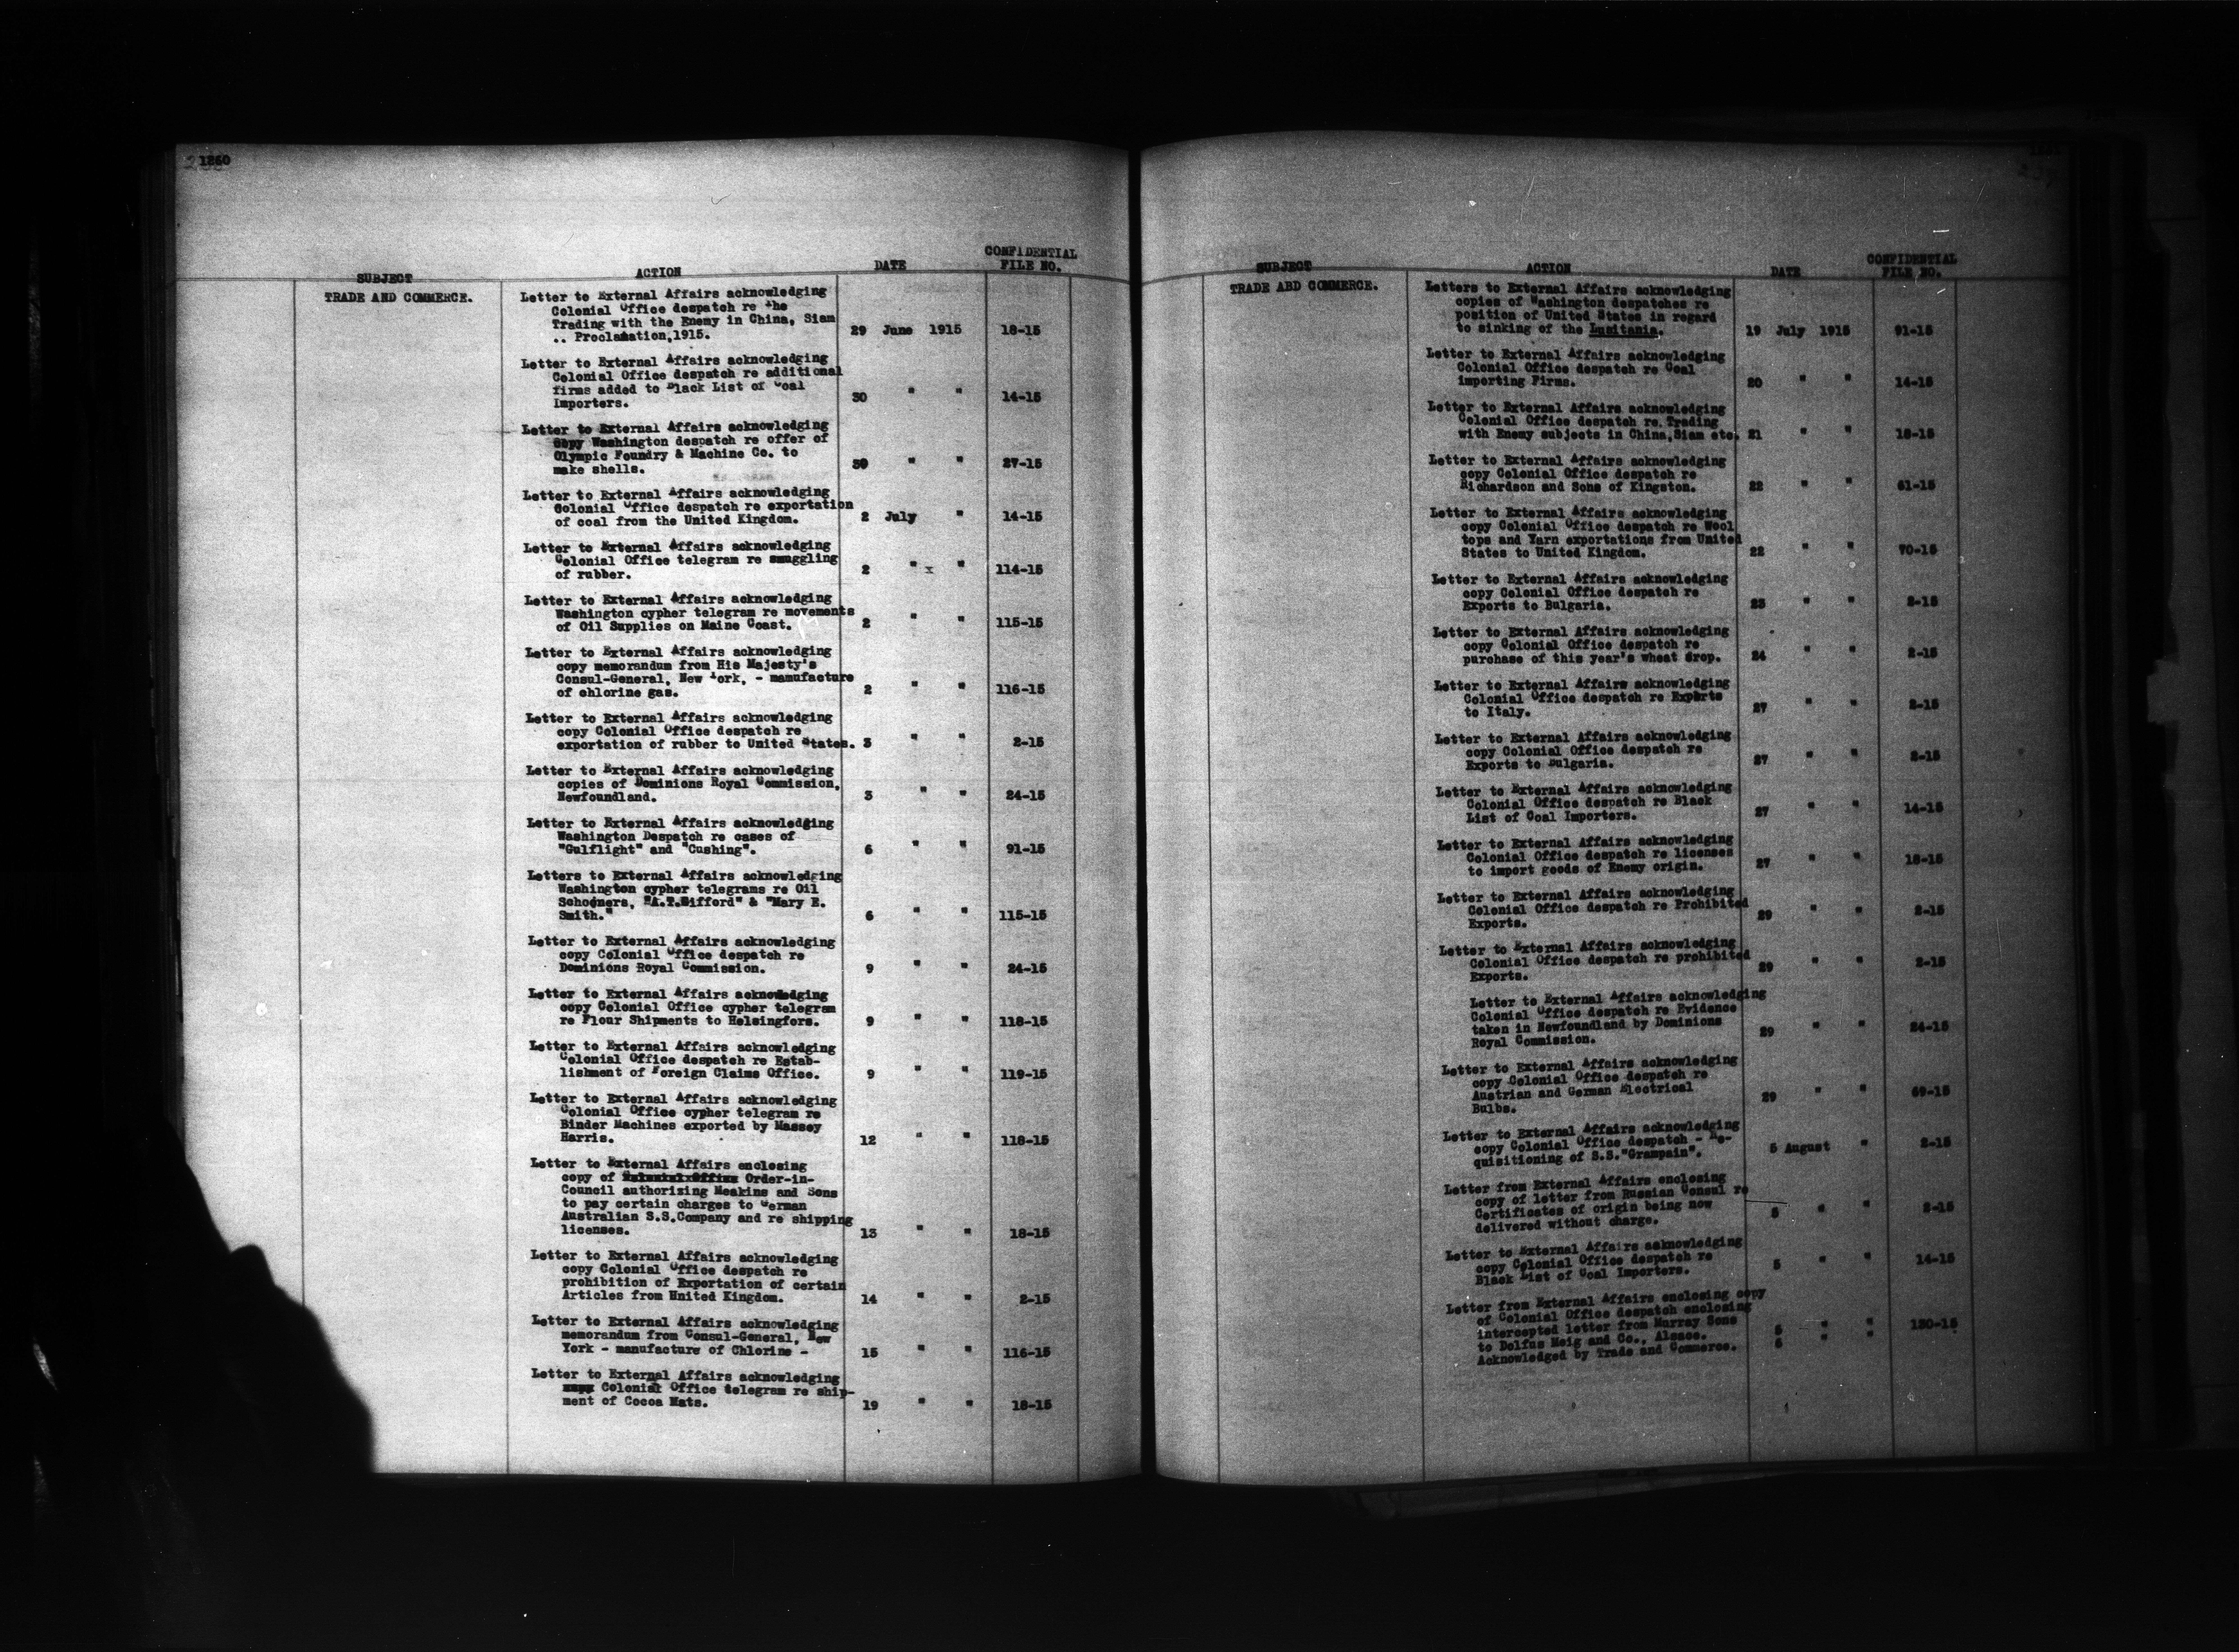 1260
SUBJECT ACTION DATE CONFIDENTIAL FILE NO.
TRADE AND COMMERCE.
Letter to External Affairs acknowledging
Colonial Office despatch re the
Trading with the Enemy in China, Siam
.. Proclamation,1915. 29 June 1915 18-15
Letter to External Affairs acknowledging
Colonial Office despatch re additional
firms added to Black List of Coal
Importers. 30 " " 14-15
Letter to External Affairs acknowledging
copy Washington despatch re offer of
Olympic Foundry & Machine Co. to
make shells. 30 " " 27-15
Letter to External Affairs acknowledging
Colonial Office despatch re exportation
of coal from the United Kingdom. 2 July " 14-15
Letter to External Affairs acknowledging
Colonial Office telegram re smuggling
of rubber. 2 " x " 114-15
Letter to External Affairs acknowledging
Washington cypher telegram re movements
of Oil Supplies on Maine Coast. 2 " " 115-15
Letter to External Affairs acknowledging
copy memorandum from His Majesty's
Consul-General, New York, - manufacture
of chlorine gas. 2 " " 116-15
Letter to External Affairs acknowledging
copy Colonial Office despatch re
exportation of rubber to United States. 3 " " 2-15
Letter to External Affairs acknowledging
copies of Dominions Royal Commission,
Newfoundland. 3 " " 24-15
Letter to External Affairs acknowledging
Washington Despatch re cases of
"Gulflight" and "Cushing". 6 " " 91-15
Letters to External Affairs acknowledging
Washington cypher telegrams re Oil
Schooners, "A.T.Gifford" & "Mary E.
Smith." 6 " " 115-15
Letter to External Affairs acknowledging
copy Colonial Office despatch re
Dominions Royal Commission. 9 " " 24-15
Letter to External Affairs acknowledging
copy Colonial Office cypher telegram
re Flour Shipments to Helsingfors. 9 " " 118-15
Letter to External Affairs acknowledging
Colonial Office despatch re Estab-
lishment of Foreign Claims Office. 9 " " 119-15
Letter to External Affairs acknowledging
Colonial Office cypher telegram re
Binder Machines exported by Massey
Harris. 12 " " 118-15
Letter to External Affairs enclosing
copy of Colonial Office Order-in-
Council authorizing Meakins and Sons
to pay certain charges to German
Australian S.S.Company and re shipping
licenses. 13 " " 18-15
Letter to External Affairs acknowledging
copy Colonial Office despatch re
prohibition of Exportation of certain
Articles from United Kingdom. 14 " " 2-15
Letter to External Affairs acknowledging
memorandum from Consul-General, New
York - manufacture of Chlorine - 15 " " 116-15
Letter to External Affairs acknowledging
copy Colonial Office telegram re ship-
ment of Cocoa Mats. 19 " " 18-15
SUBJECT ACTION DATE CONFIDENTIAL FILE NO.
TRADE ABD COMMERCE.
Letters to External Affairs acknowledging
copies of Washington despatches re
position of United States in regard
to sinking of the Lusitania. 19 July 1915 91-15
Letter to External Affairs acknowledging
Colonial Office despatch re Coal
importing Firms. 20 " " 14-15
Letter to External Affairs acknowledging
Colonial Office despatch re Trading
with Enemy subjects in China,Siam etc. 21 " " 18-15
Letter to External Affairs acknowledging
copy Colonial Office despatch re
Richardson and Sons of Kingston. 22 " " 61-15
Letter to External Affairs acknowledging
copy Colonial Office despatch re Wool
tops and Yarn exportations from United
States to United Kingdom. 22 " " 70-15
Letter to External Affairs acknowledging
copy Colonial Office despatch re
Exports to Bulgaria. 23 " " 2-15
Letter to External Affairs acknowledging
copy Colonial Office despatch re
purchase of this year's wheat crop. 24 " " 2-15
Letter to External Affairs acknowledging
Colonial Office despatch re Exports
to Italy. 27 " " 2-15
Letter to External Affairs acknowledging
copy Colonial Office despatch re
Exports to Bulgaria. 27 " " 2-15
Letter to External Affairs acknowledging
Colonial Office despatch re Black
List of Coal Importers. 27 " " 14-15
Letter to External Affairs acknowledging
Colonial Office despatch re licenses
to import goods of Enemy origin. 27 " " 18-15
Letter to External Affairs acknowledging
Colonial Office despatch re Prohibited
Exports. 29 " " 2-15
Letter to External Affairs acknowledging
Colonial Office despatch re prohibited
Exports. 29 " " 2-15
Letter to External Affairs acknowledging
Colonial Office despatch re Evidence
taken in Newfoundland by Dominions
Royal Commission. 29 " " 24-15
Letter to External Affairs acknowledging
copy Colonial Office despatch re
Austrian and German Electrical
Bulbs. 29 " " 69-15
Letter to External Affairs acknowledging
copy Colonial Office despatch - Re-
quisitioning of S.S."Grampain". 5 August " 2-15
Letter from External Affairs enclosing
copy of letter from Russian Consul re
Certificates of origin being now
delivered without charge. 5 " " 2-15
Letter to External Affairs acknowledging
copy Colonial Office despatch re
Black List of Coal Importers. 5 " " 14-15
Letter from External Affairs enclosing copy
of Colonial Office despatch enclosing
intercepted letter from Murray Sons
to Dolfus Meig and Co., Alsace. 5 " " 130-15
Acknowledged by Trade and Commerce. 5 " "